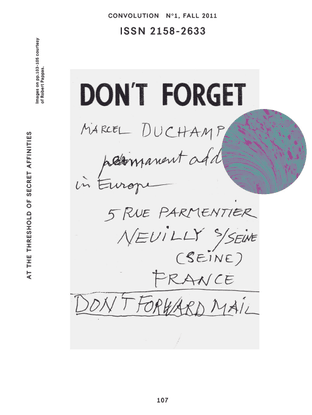 CONVOLUTION N°1, FALL 2011
ISSN 2158-2633
Images on pp.103-106 courtesy
of Robert Pappas.
AT THE THRESHOLD OF SECRET AFFINITIES
DON'T FORGET
MARCEL DUCHAMP
permanent add
in Europe
5 RUE PARMENTIER
NEUILLY S/SEINE
(SEINE)
FRANCE
DON'T FORWARD MAIL
107